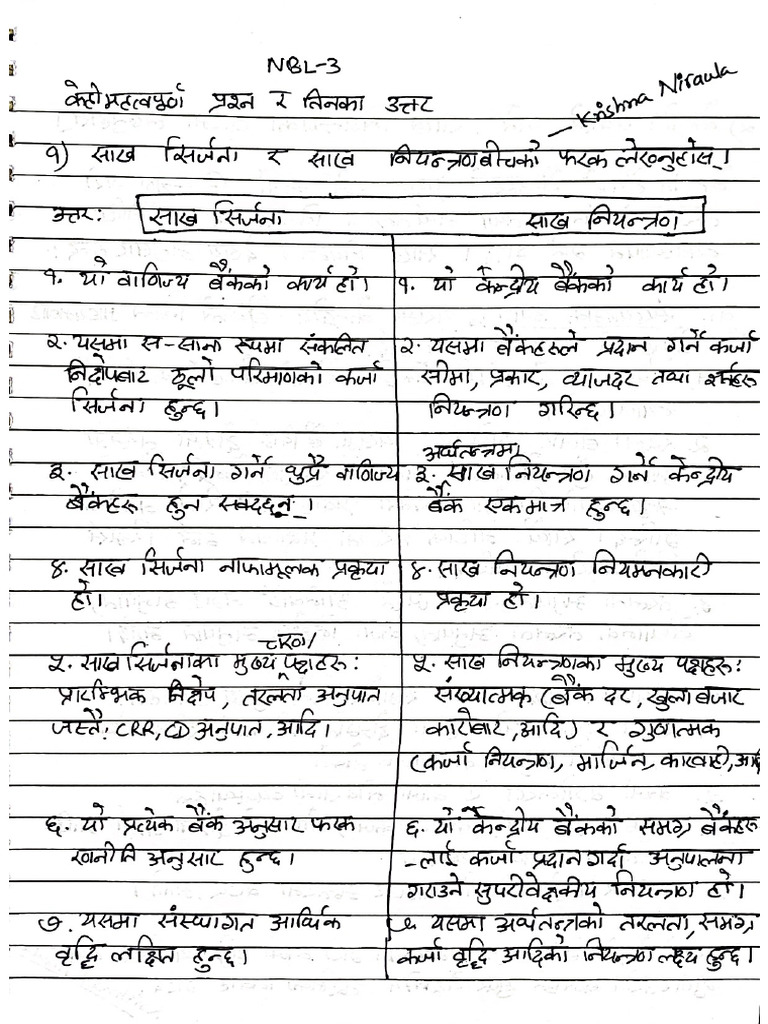 NBL-3
केही महत्वपूर्ण प्रश्न र तिनका उत्तर
— Krishna Niraula
१) साख सिर्जना र साख नियन्त्रणबीचको फरक लेख्नुहोस्।
उत्तर: साख सिर्जना साख नियन्त्रण
१. यो वाणिज्य बैंकको कार्य हो।
२. यसमा स-साना रूपमा संकलित
निक्षेपबाट ठूलो परिमाणको कर्जा
सिर्जना हुन्छ।
३. साख सिर्जना गर्ने थुप्रै वाणिज्य
बैंकहरू हुन सक्दछन्।
४. साख सिर्जना नाफामूलक प्रकृया
हो।
५. साख सिर्जनाका मुख्य पक्षहरू:
प्रारम्भिक निक्षेप, तरलता अनुपात
जस्तै: CRR, CD अनुपात, आदि।
६. यो प्रत्येक बैंक अनुसार फरक
रणनीति अनुसार हुन्छ।
७. यसमा संस्थागत आर्थिक
वृद्धि लक्षित हुन्छ।
१. यो केन्द्रीय बैंकको कार्य हो।
२. यसमा बैंकहरूले प्रदान गर्ने कर्जा
सीमा, प्रकार, व्याजदर तथा शर्तहरू
नियन्त्रण गरिन्छ।
अर्थतन्त्रमा
३. साख नियन्त्रण गर्ने केन्द्रीय
बैंक एकमात्र हुन्छ।
४. साख नियन्त्रण नियमनकारी
प्रकृया हो।
५. साख नियन्त्रणका मुख्य पक्षहरू:
संख्यात्मक (बैंक दर, खुला बजार
कारोबार, आदि) र गुणात्मक
(कर्जा नियन्त्रण, मार्जिन, कारवाही,
६. यो केन्द्रीय बैंकको समग्र बैंकहरू
-लाई कर्जा प्रदान गर्दा अनुपालना
गराउने सुपरीवेक्षकीय नियन्त्रण हो।
७. यसमा अर्थतन्त्रको तरलता, समग्र
कर्जा वृद्धि आदिको नियन्त्रण लक्ष्य हुन्छ।